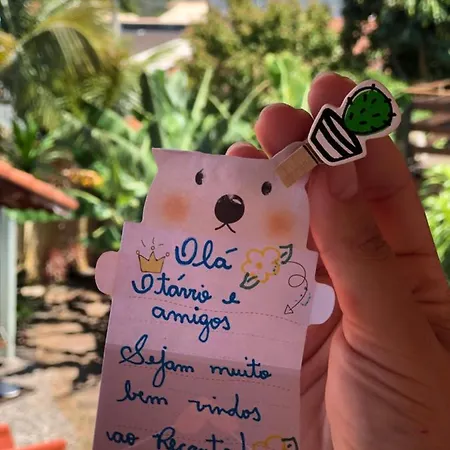 Olá
Otávio e
amigos
Sejam muito
bem vindos
ao Recanto